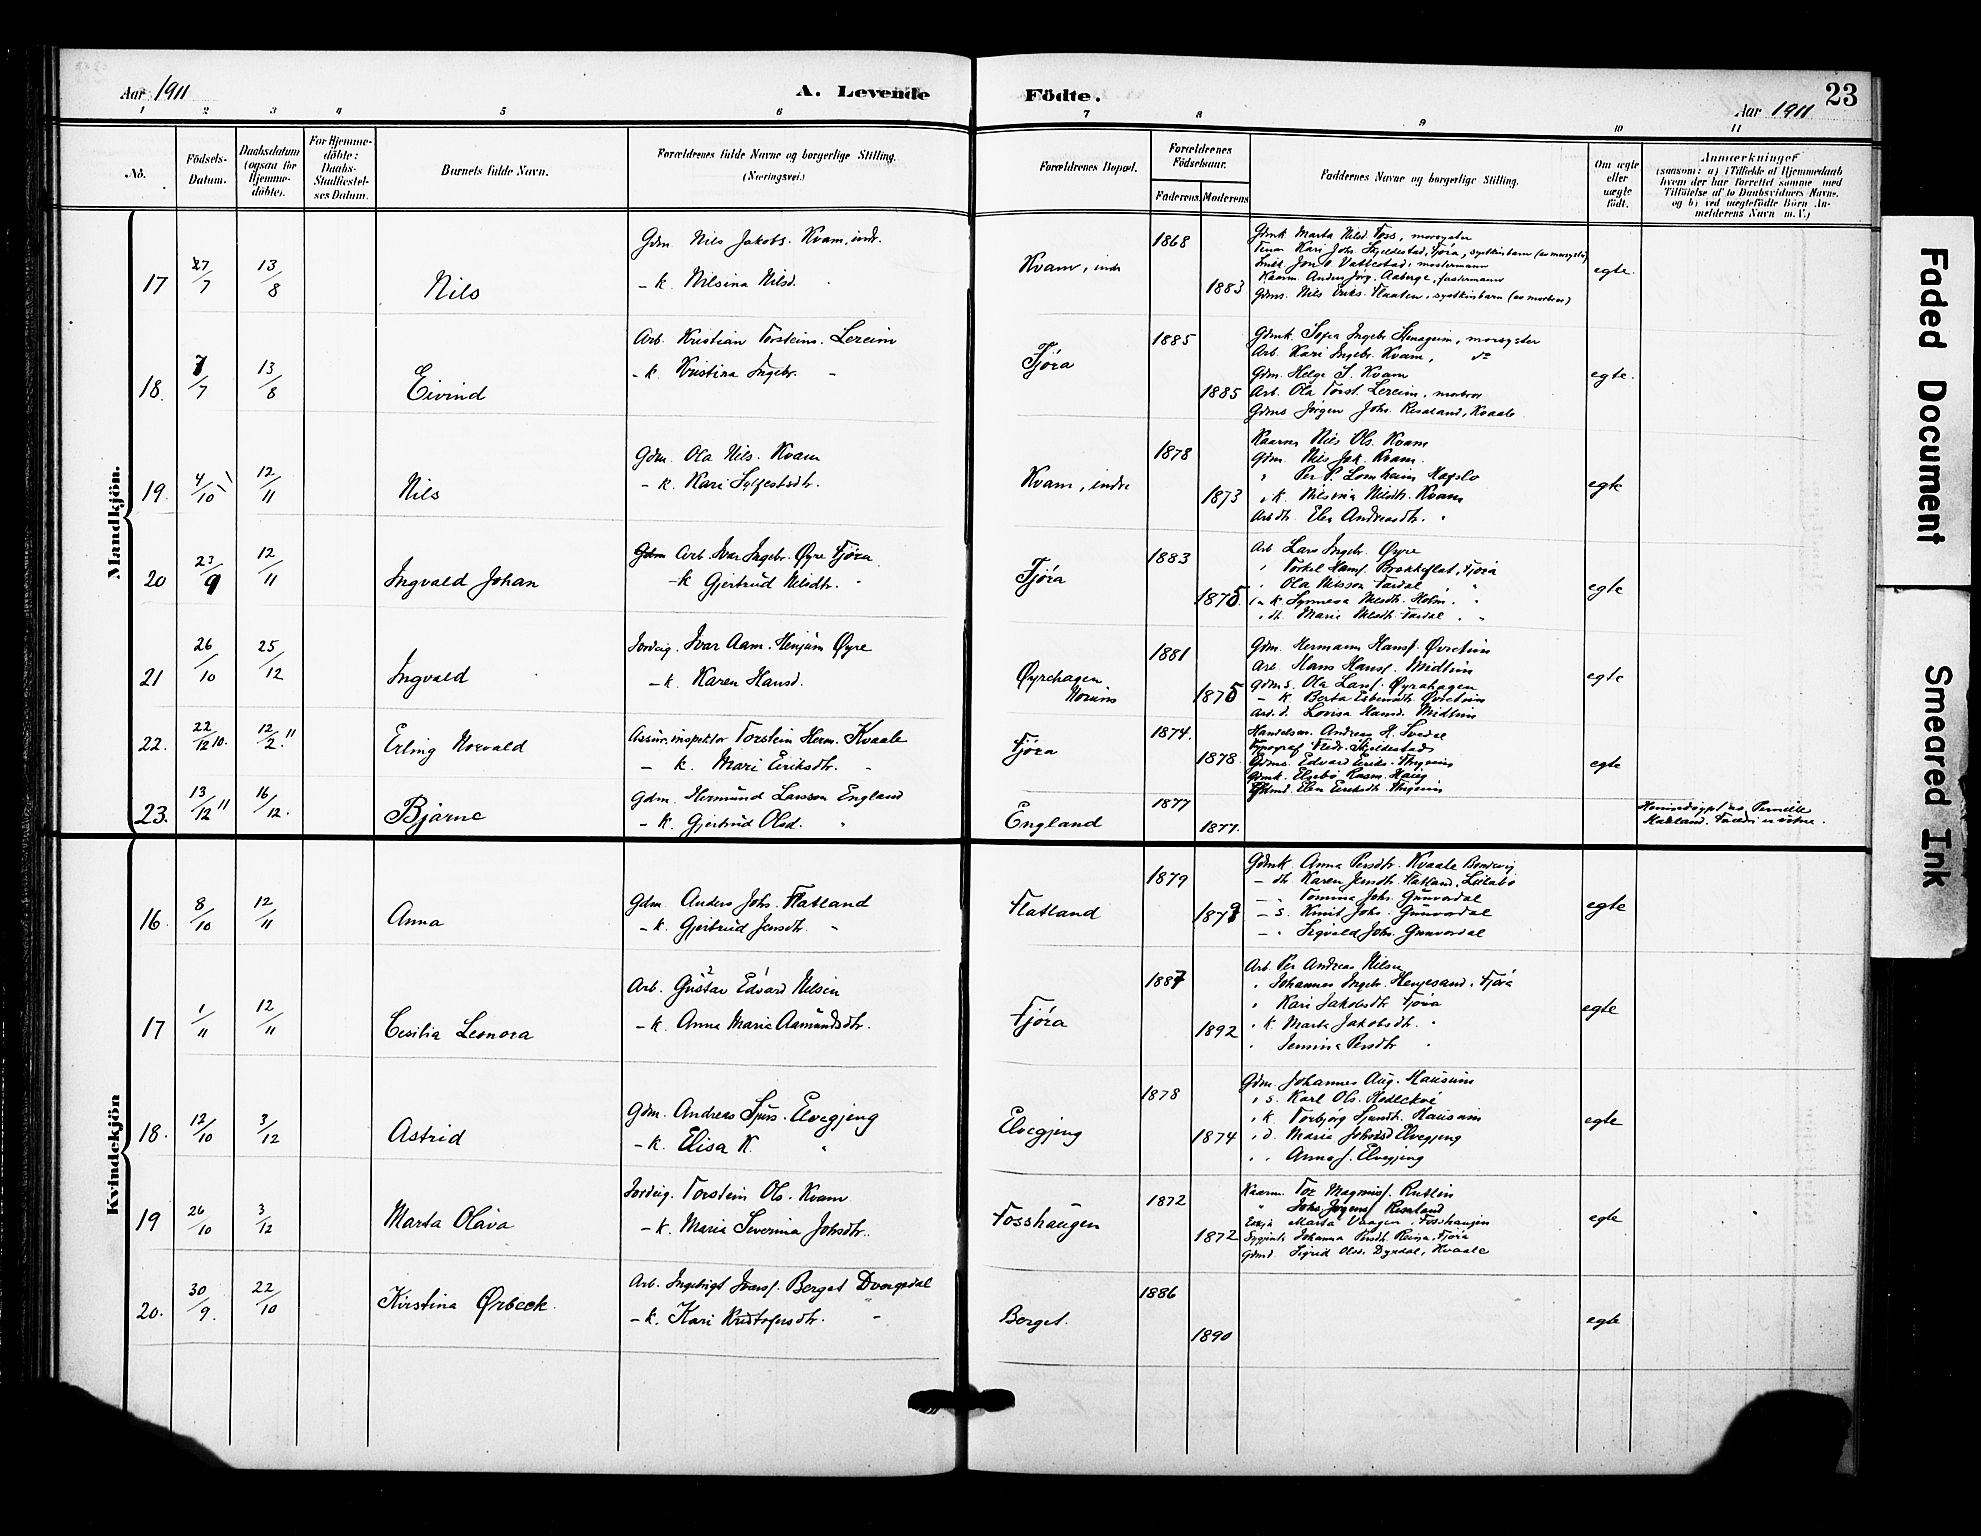 Aar 1911
A. Levende
Födte.
Aar 1911
23
1 2 3 4 5 6 7 8 9 10 11
No.
Födsels-Datum.
Daabsdatum (ogsaa for Hjemme-döbte).
For Hjemme-döbte: Daabs-Stadfæstel-ses Datum.
Barnets fulde Navn.
Forældrenes fulde Navne og borgerlige Stilling. (Næringsvei.)
Forældrenes Bopæl.
Forældrenes Födselsaar.
Faderens. Moderens.
Faddernes Navne og borgerlige Stilling.
Om ægte eller uægte födt.
Anmærkninger
(saasom: a) i Tilfælde af Hjemmedaab
hvem der har forrettet samme med
Tilföielse af to Daabsvidners Navne.
og b) ved uegtefödte Börn An-
melderens Navn m.V.)
Mandkjön.
17 27/7 13/8 Nils
Gdm. Nils Jakobs. Kvam, indr.
- k. Nilsina Nilsd.
Kvam, indr 1868 1883
Gdmk Marta Nilsd. Foss, morsyster
Tenar Kari Johs. Skjeldestad, Fjöra, systkinbarn (av morsyst.)
Smed Jon O Vattestad, mostermann
Kaarm. Anders Jörg. Aaberge, fastermann
Gdms. Nils Eriks. Flaaten, systkinbarn (av morbror)
egte.
18. 7/7 13/8 Eivind
Arb. Kristian Torsteins. Lereim
- k. Kristina Ingebr. -
Fjöra 1885 1885
Gdmk. Sofia Ingebr. Stenageim, morsyster
Arb. Kari Ingebr. Kvam, do
Gdm. Helge S. Kvam
Arb. Ola Torst. Lereim, morbror
Gdms Jörgen Johs. Risaland, Kvaale
egte.
19. 4/10 12/11 Nils
Gdm. Ola Nils. Kvam
- k. Kari Sylfestsdtr.
Kvam, indre 1878 1873
Kaarm Nils Ols. Kvam
Gdm. Nils Jak. Kvam.
" Per P. Lomheim Hafslo
" k. Nilsina Nilsdtr. Kvam
Arb dtr. Elen Andreasdtr. "
egte
20 23/9 12/11 Ingvald Johan
Gdm Arb. Ivar Ingebr. Øyre Fjöra
- k Gjertrud Nilsdtr. "
Fjöra 1883 1875.
Arb. Lars Ingebr. Øyre
" Torkel Hansf. Brekkeflat, Fjöra
" Ola Nilsson Fardal "
" k. Synneva Nilsdtr. Holm. "
" dtr. Marie Nilsdtr. Fardal "
egte
21 26/10 25/12 Ingvald
Jordeig. Ivar Aam. Henjum Øyre
- k. Karen Hansd.
Øyrehagen Norum 1881 1875
Gdm. Hermann Hansf. Øvretun
Arb. Hans Hansf. Midtun
Gdms. Ola Larsf. Øyrahagen
- k. Berta Esbensdtr. Øvretun
Arb. d. Lovisa Hansd. Midtun
egte
22. 22/12 10. 12/2 11 Erling Norvald
Assur.inspektør Torstein Herm. Kvaale
- k. Mari Eiriksdtr. -
Fjöra 1874. 1878.
Handelsm. Andreas H. Svedal
Typograf Fredr. Skjeldestad
Gdms. Edvard Eiriks.
Gdmk. Elisbö Rasm. Haug
Gdmd. Elen Eiriksdtr.
egte
23. 13/12 11 16/12. Bjarne
Gdm. Hermund Larsson England
- k. Gjertrud Olsd. "
England 1877 1877.
Kvindekjön
16. 8/10 12/11 Anna
Gdm Anders Johs. Flatland
- k. Gjertrud Jensdtr. -
Flatland 1879 1879
Gdmk Anna Persdtr. Kvaale
- dtr. Karen Jensdtr. Flatland,
- " Tomina Johs. Gunvordal
- s. Knut Johs. Gunvordal
- " Sigvald Johs. Gunvordal
egte
17 1/11 12/11 Cesilia Leonora
Arb. Gustav Edvard Nilsen
- k. Anna Marie Aamundsdtr.
Fjöra 1887 1892
Arb. Per Andreas Nilsen
" Johannes Ingebr. Henjesand, Fjöra
" Kari Jakobsdtr Fjöra
" k. Marta Jakobsdtr. "
" Jensina Persdtr "
egte
18. 12/10 3/12 Astrid
Gdm. Andreas Sjurs. Elvegjeng
- k. Elisa K. "
Elvegjeng 1878 1874
Gdm. Johannes Aug. Hausum
" s. Karl Ols. Kodlekvé
" k. Torbjørg Sjurdtr. Hausum
" d. Marie Johnsd Elvegjeng
" " Anna J. Elvegjeng
egte
19 26/10 3/12 Marta Olava
Jordeig. Torstein Ols. Kvam
- k. Maria Severina Johsdtr.
Fosshaugen 1872 1872
Kaarm. Tor Magnusf. Rutlin
" Johs. Jörgens. Risaland
Marta Vangen, Fosshaugen
Johanna Persdtr. Fjöra
Gdmd. Sigrid Olsd. Dyrdal, Kvaale
egte
20. 30/9. 22/10 Kirstina Ørbeck.
Arb. Ingebrigt Ivarsf. Berget Dvergsdal
- k. Kari Kristofersdtr. -
Berget. 1886 1890
egte
Faded Document
Smeared Ink